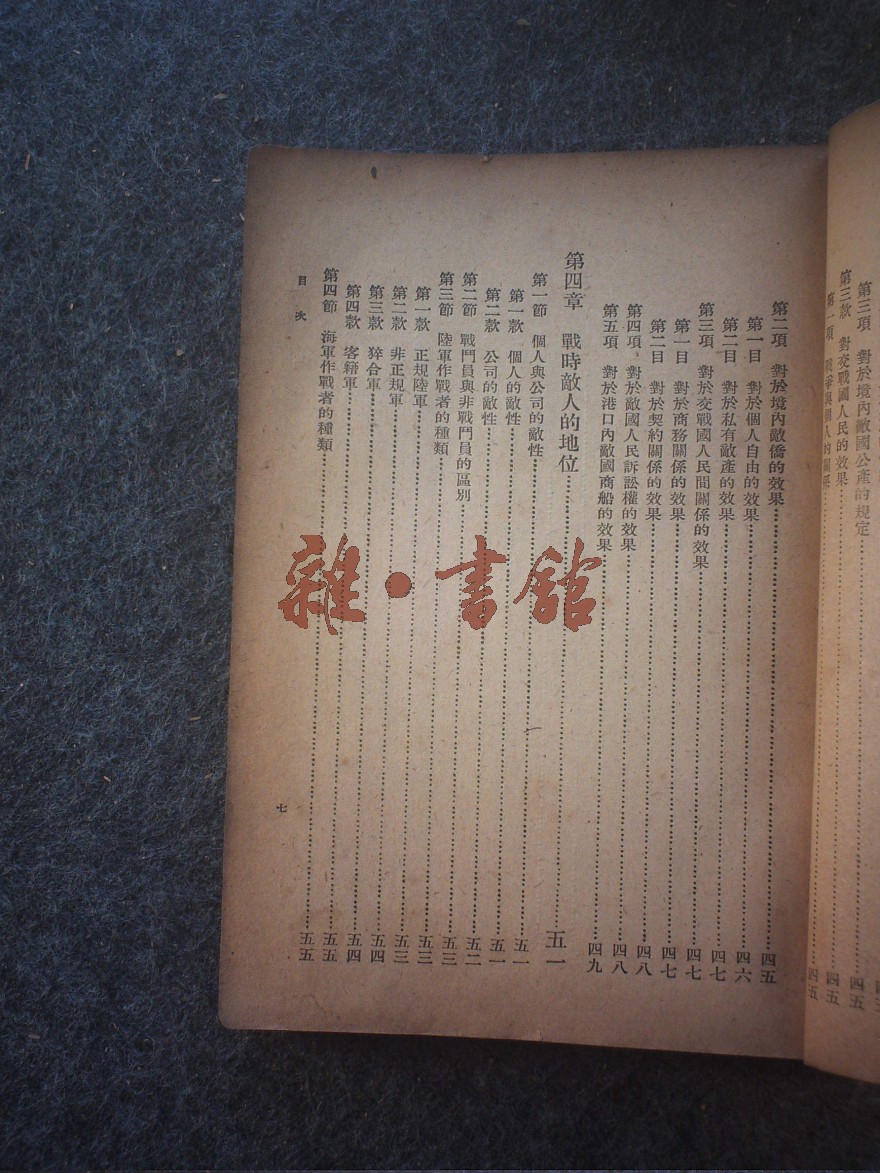 第三項 對於境內敵國公產的規定 四五
第三款 對交戰國人民的效果 四五
第一項 戰爭與個人的關係 四五
第二項 對於境內敵僑的效果 四五
第一目 對於個人自由的效果 四六
第二目 對於私有敵產的效果 四七
第三項 對於交戰國人民間關係的效果 四七
第一目 對於商務關係的效果 四七
第二目 對於契約關係的效果 四八
第四項 對於敵國人民訴訟權的效果 四八
第五項 對於港口內敵國商船的效果 四九
第四章 戰時敵人的地位 五一
第一節 個人與公司的敵性 五一
第一款 個人的敵性 五一
第二款 公司的敵性 五一
第二節 戰鬥員與非戰鬥員的區別 五二
第三節 陸軍作戰者的種類 五三
第一款 正規陸軍 五三
第二款 非正規軍 五三
第三款 猝合軍 五四
第四款 客籍軍 五四
第四節 海軍作戰者的種類 五五
五五
目次
七
雜·書館